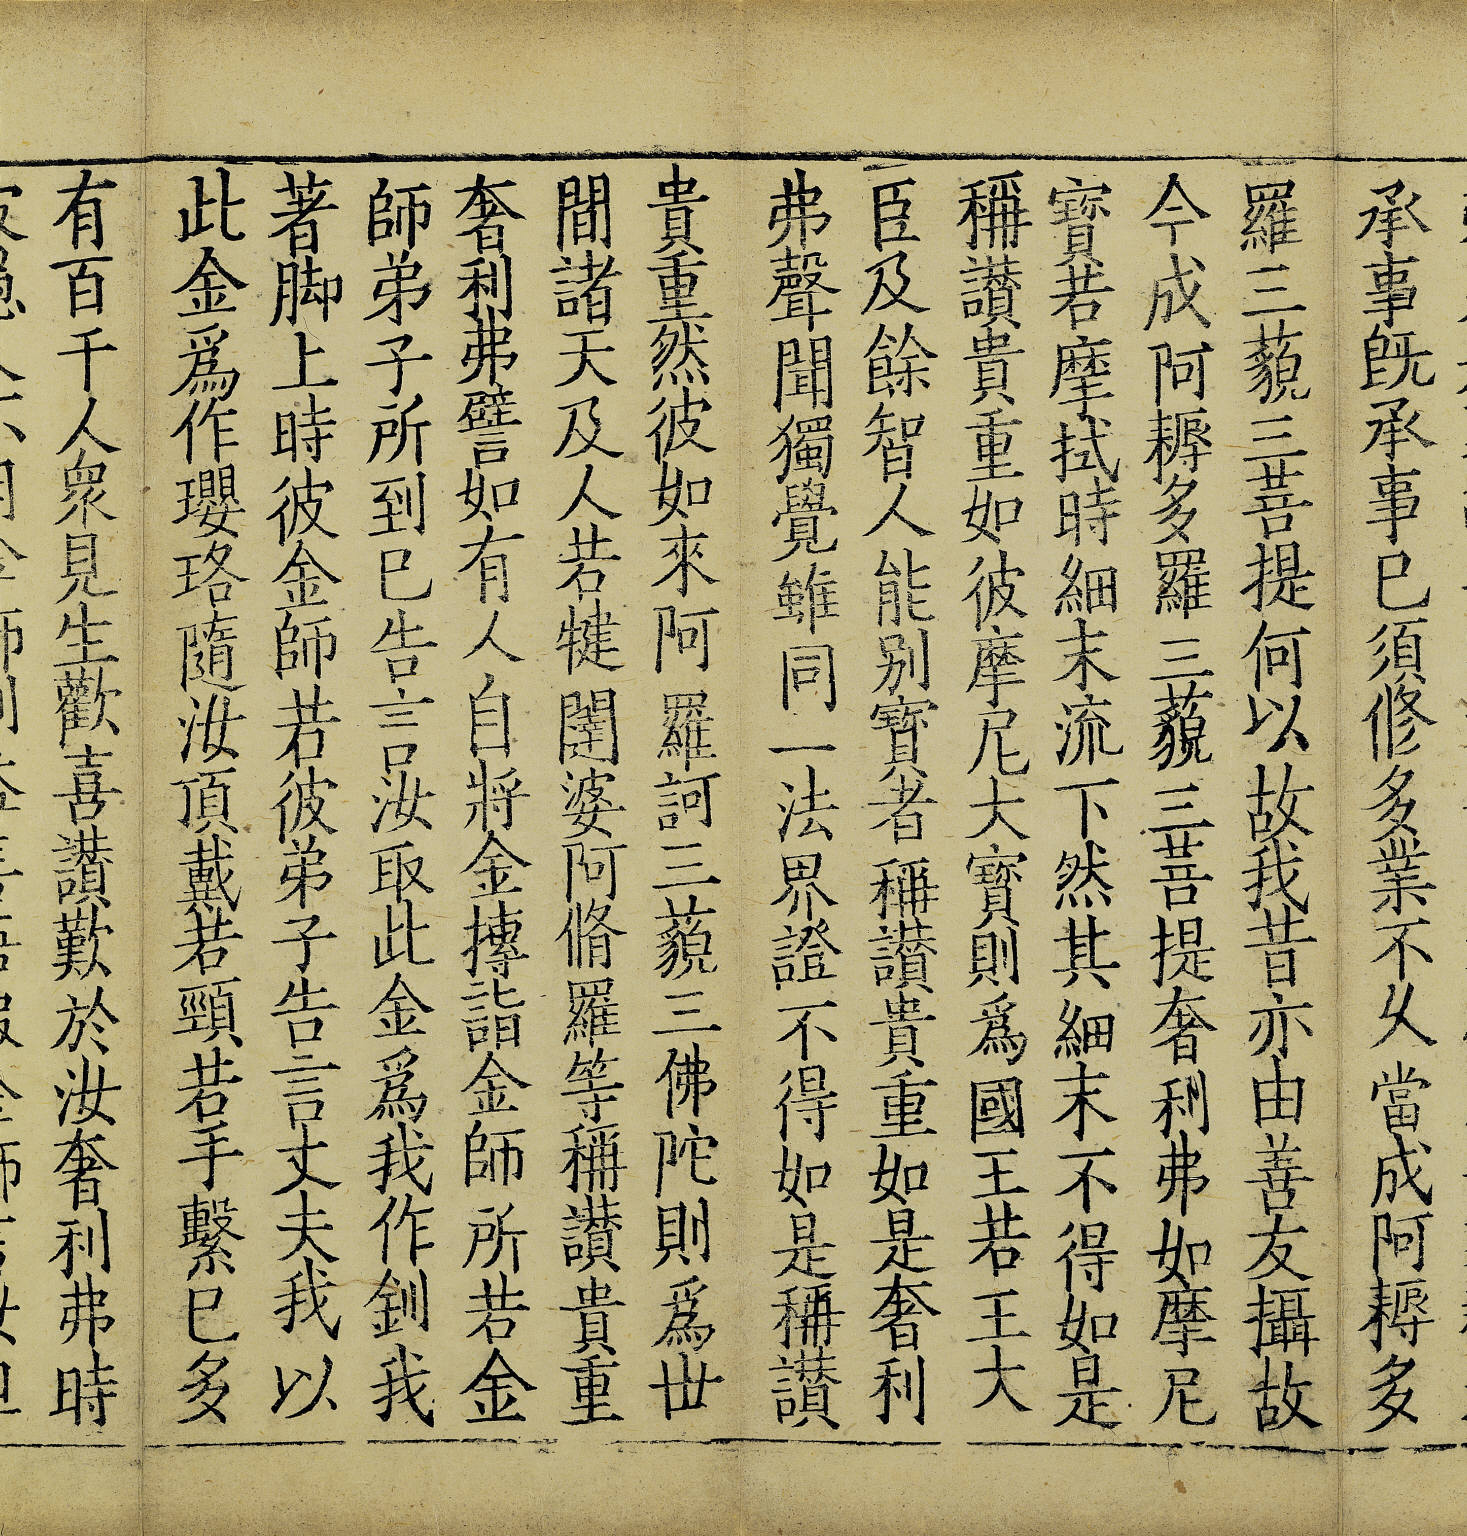 承事旣承事已須修多業不久當成阿耨多
羅三藐三菩提何以故我昔亦由善友攝故
今成阿耨多羅三藐三菩提奢利弗如摩尼
寶若摩拭時細末流下然其細末不得如是
稱讚貴重如彼摩尼大寶則爲國王若王大
臣及餘智人能別寶者稱讚貴重如是奢利
弗聲聞獨覺雖同一法界證不得如是稱讚
貴重然彼如來阿羅訶三藐三佛陀則爲世
間諸天及人若犍闥婆阿脩羅等稱讚貴重
奢利弗譬如有人自將金摶詣金師所若金
師弟子所到已告言汝取此金爲我作釧我
著脚上時彼金師若彼弟子告言丈夫我以
此金爲作瓔珞隨汝頂戴若頸若手繫已多
有百千人衆見生歡喜讚歎於汝奢利弗時